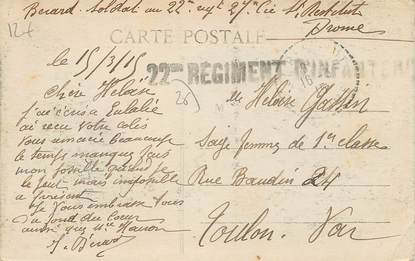 Berard soldat au 22me regt 27e Cie St Rambert
Drome
12f
CARTE POSTALE
le 15/3/15
22me REGIMENT D'INFANTERIE
26
16
Chère Héloïse
J'ai écris a Eulalie
ai recu votre colis
vous remercie Beaucoup
le temps manque fais
mon possible quand je
le peut mais impossible
a present
Je vous embrasse tous
du fond du Coeur
ainsi que Mme Manon
J. Bérard
Mme Héloïse Gassin
Sage femme de 1re classe
Rue Baudin 24
Toulon. Var